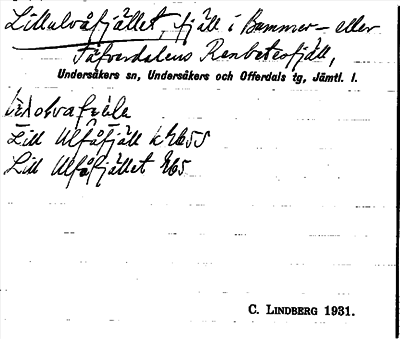 Lillulvåfjället, fjäll i Bommer- eller
Täfverdalens Renbetesfjäll,
Undersåkers sn, Undersåkers och Offerdals tg, Jämtl. l.
Lill Ulfåfjäll
Lill Ulfåfjället
C. LINDBERG 1931.